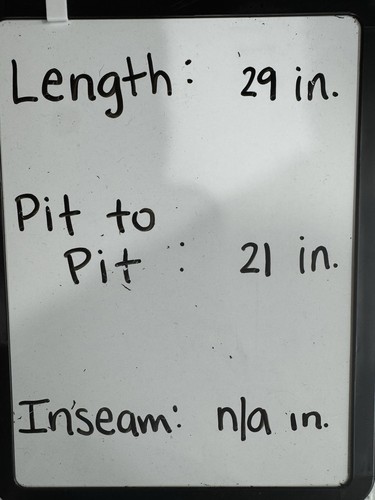 Length: 29 in.
Pit to
Pit : 21 in.
Inseam: n/a in.